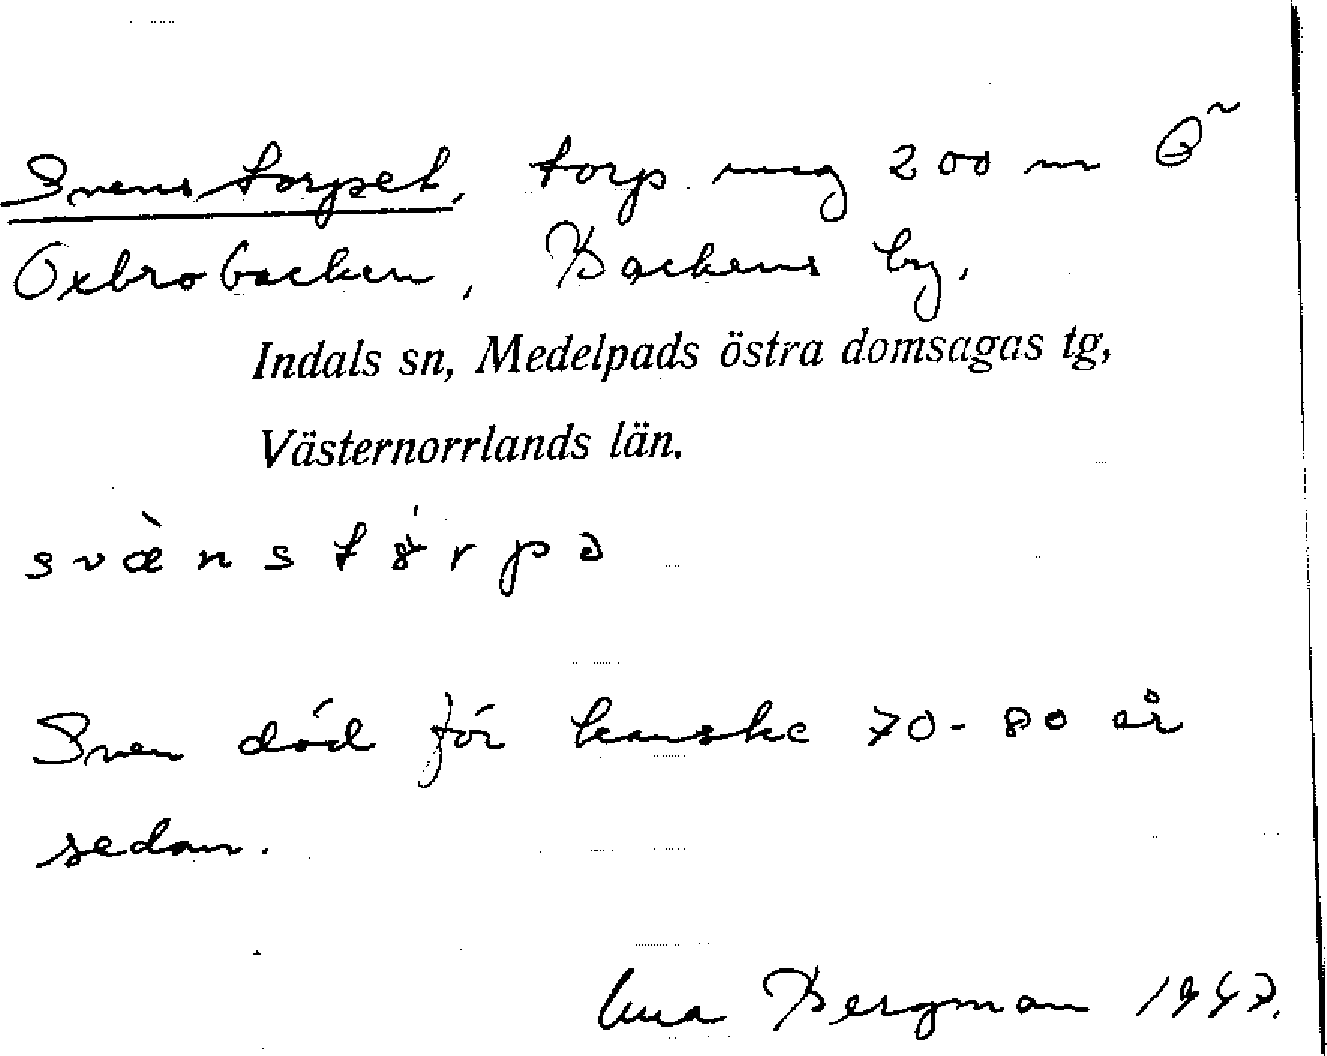 Svenstorpet, torp. ung 200 m Ö
Oxbrobacken, Backens by.
Indals sn, Medelpads östra domsagas tg,
Västernorrlands län.
svæ̀nstɵ̀rpə
Sven död för kanske 70-80 år
sedan.
Bergman